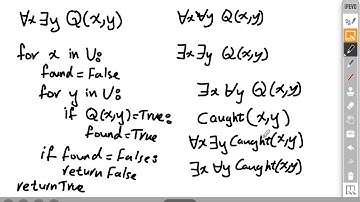 ∀x ∃y Q(x,y)
for x in U:
found=False
for y in U:
if Q(x,y)=True:
found=True
if found=False:
return False
return True
∀x ∀y Q(x,y)
∃x ∃y Q(x,y)
∃x ∀y Q(x,y)
Caught(x,y)
∀x ∃y Caught(x,y)
∃x ∀y Caught(x,y)
IPEVO